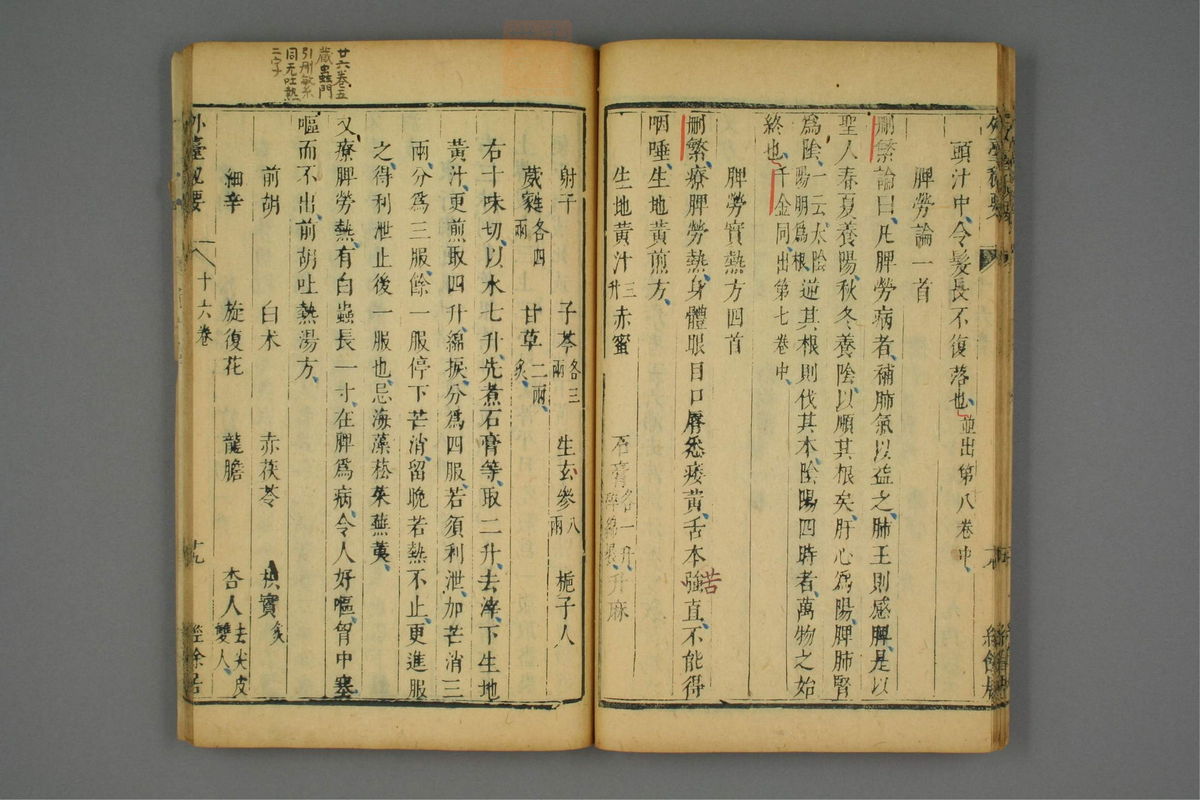 頭汁中、令髮長不復落也、並出第八卷中、
脾勞論一首
刪繁論曰、凡脾勞病者、補肺氣以益之、肺王則感脾、是以
聖人春夏養陽、秋冬養陰、以順其根矣、肝心爲陽、脾肺腎
爲陰、一云、太陰陽明爲根、逆其根則伐其本、陰陽四時者、萬物之始
終也、千金同、出第七卷中、
脾勞實熱方四首
刪繁、療脾勞熱、身體眼目口脣悉痿黃、舌本強直、不能得
苦
咽唾、生地黃煎方、
生地黃汁三升 赤蜜 石膏各一升碎綿裹 升麻
射干 子芩各三兩 生玄參八兩 梔子人
葳蕤各四兩 甘草二兩炙、
右十味切、以水七升、先煮石膏等、取二升、去滓、下生地
黃汁、更煎取四升、綿捩、分爲四服、若須利泄、加芒消三
兩、分爲三服、餘一服停下芒消、留晚若熱不止、更進服
之、得利泄止後一服也、忌海藻菘菜蕪荑、
又療脾勞熱、有白蟲長一寸、在脾爲病、令人好嘔、胷中塞
嘔而不出、前胡吐熱湯方、
前胡 白朮 赤茯苓 枳實炙
細辛 旋復花 龍膽 杏人去尖皮雙人、
外臺祕要 十六卷 十九 經餘居
廿六卷五
藏蟲門
引刪繁
同无吐熱
二字